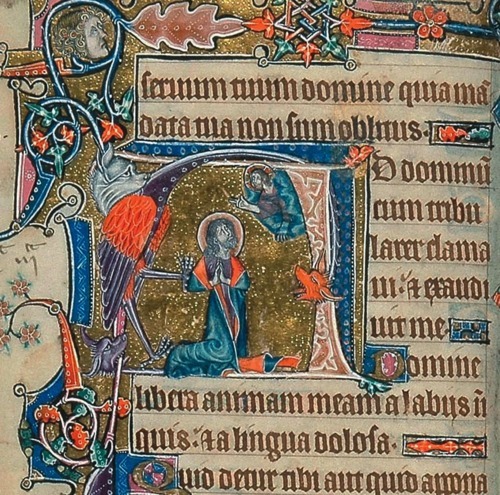 seruum tuum domine quia mā
data tua non sum oblitus.
AD dominū
cum tribu
larer clama
ui: et exaudi
uit me
Domine
libera animam meam a labiis īi
quis: et a lingua dolosa.
Quid detur tibi aut quid appona